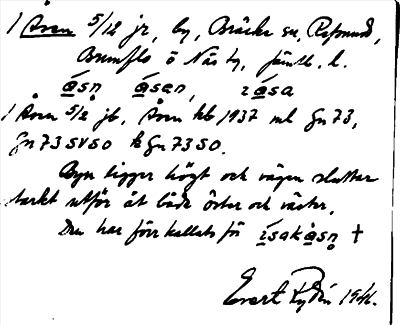 1 Åsen 5/12 jr, by, Bräcke sn, Refsunds,
Brunflo o Näs tg, Jämtl. l.
ásn̥ ásan, ɪ ása
1 Åsen 5/2 jb, Åsen hb 1937 ml Gn 73,
Gn 73 SV SO Gn 73 SO.
Byn ligger högt och vägen sluttar
starkt utför åt både öster och väster.
Den har förr kallats för ísakåsn̥ †
Evert 1941.